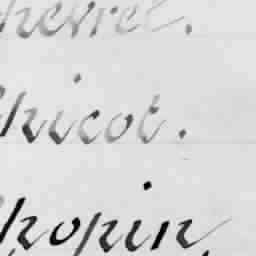 hevrel.
hicot.
hopin,